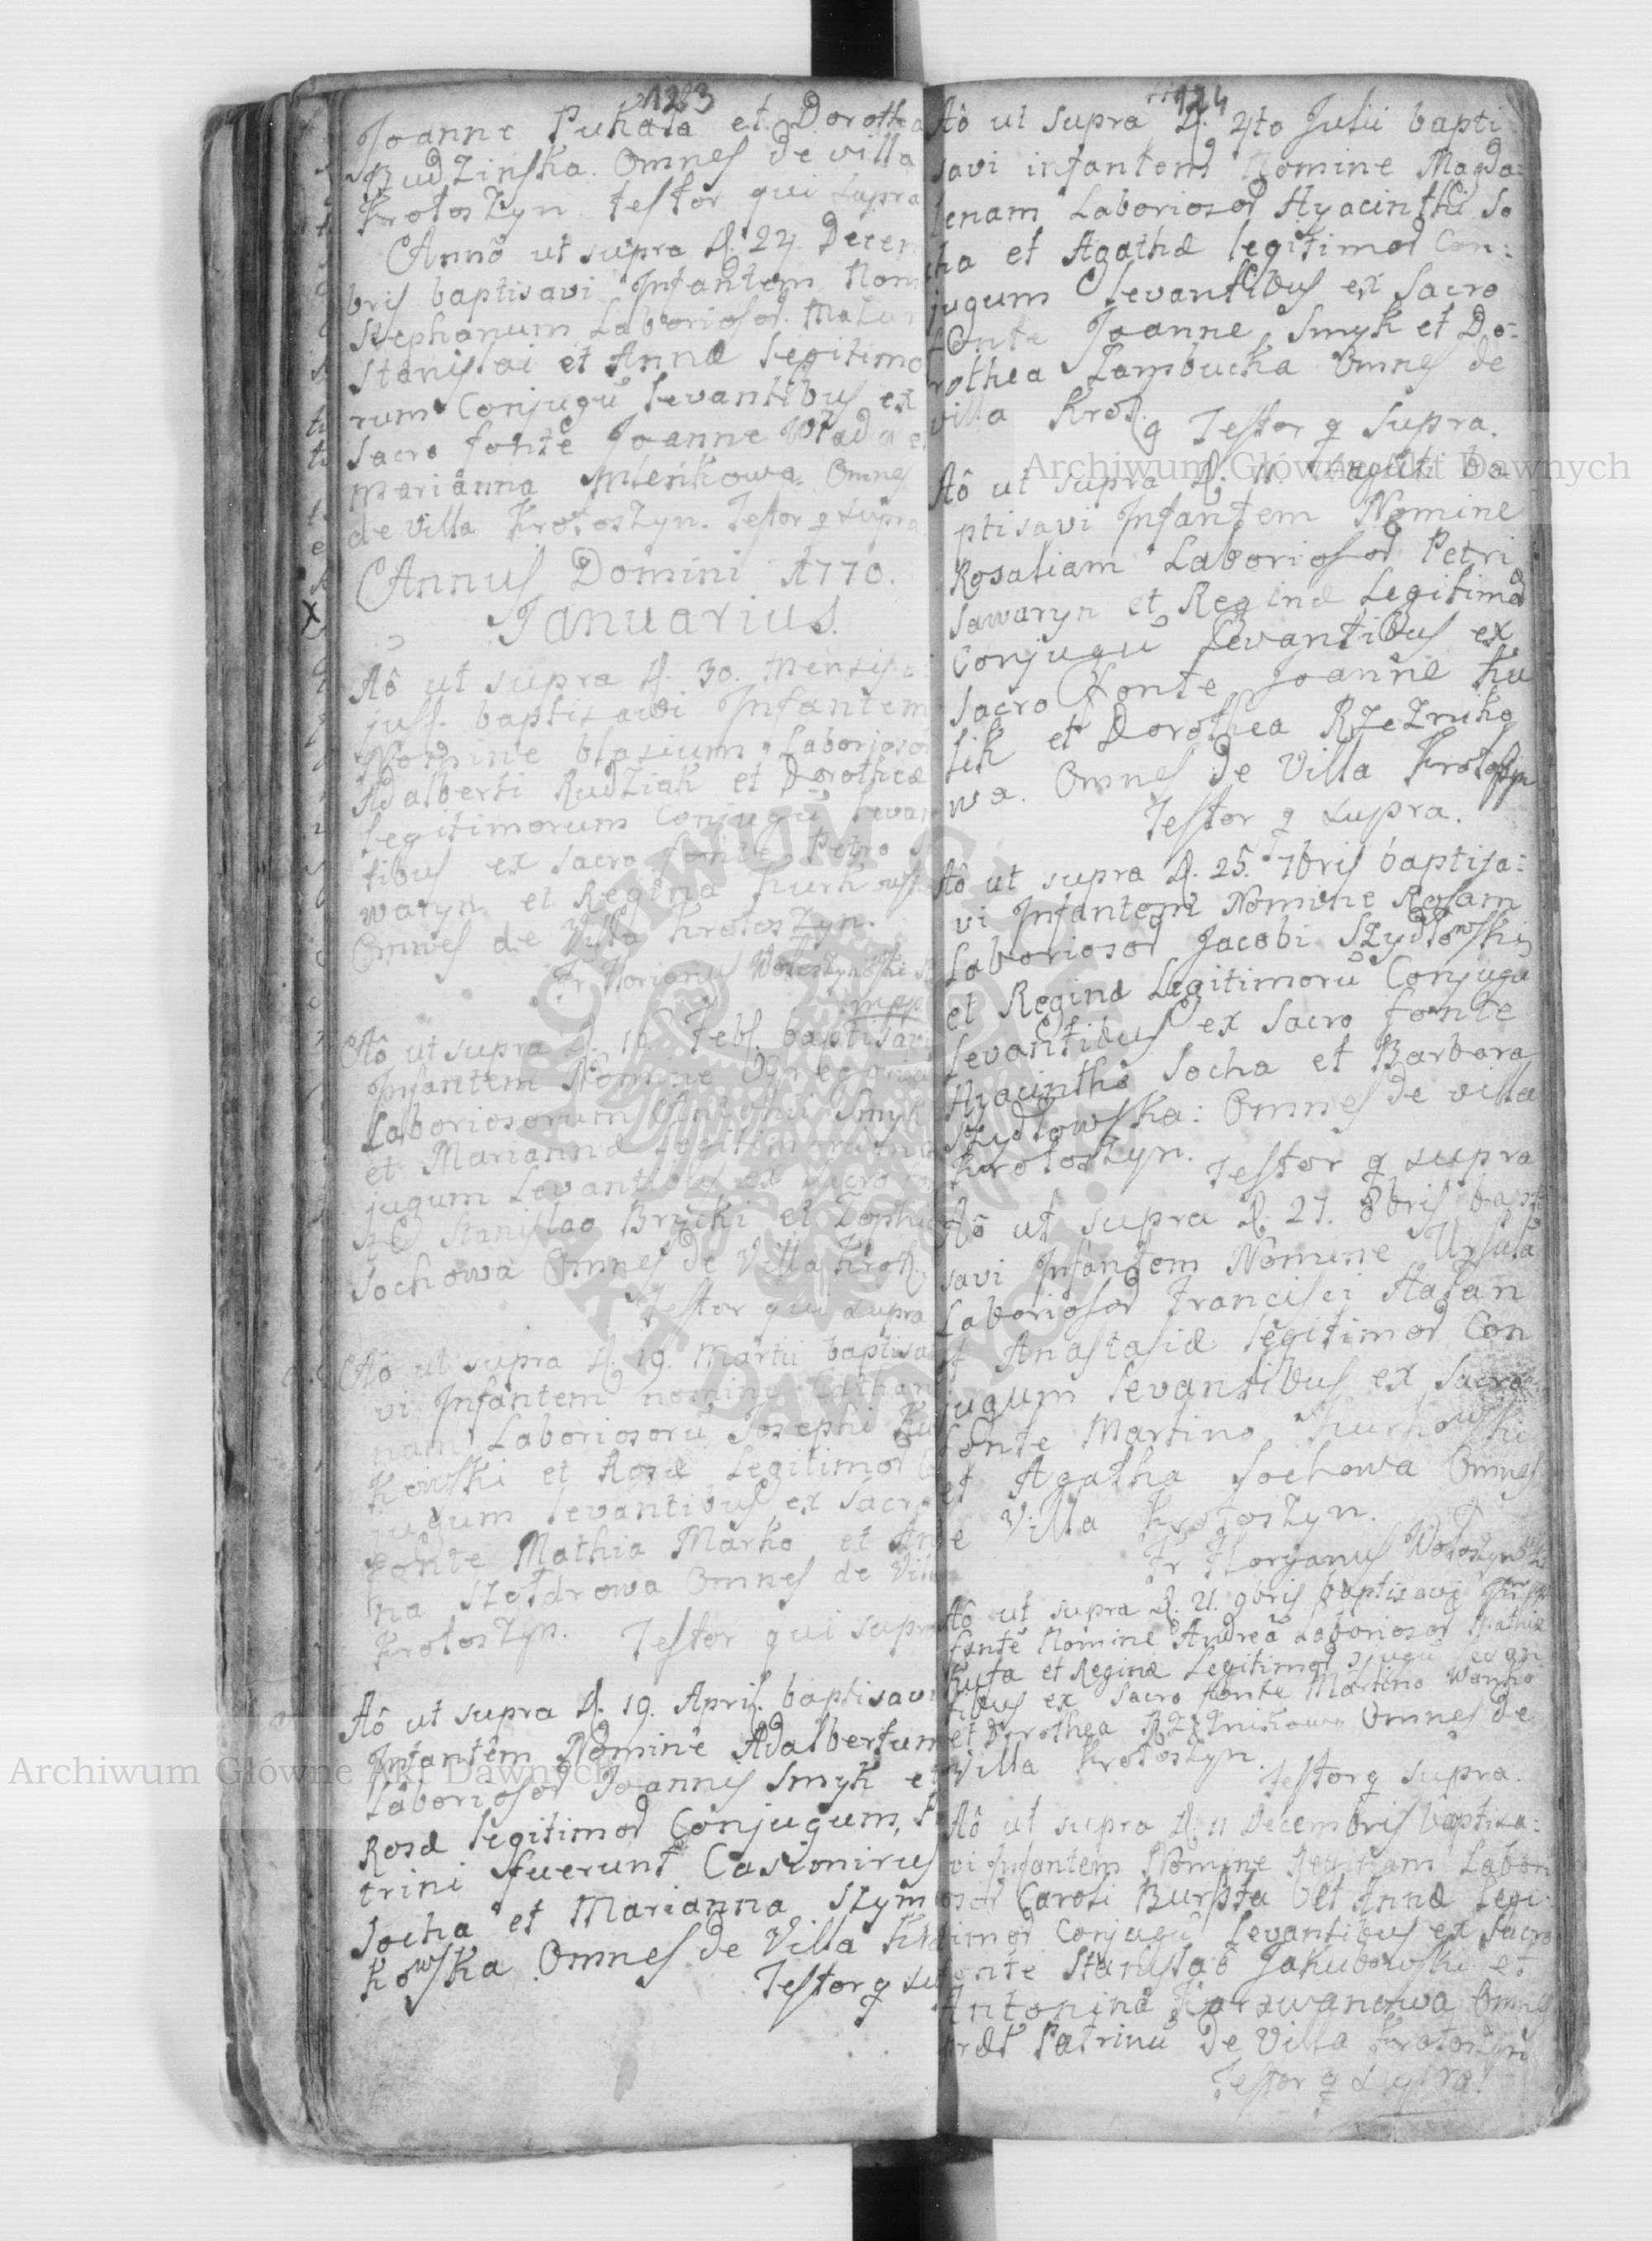 123
Joanne Pukała et Dorothea
Rudzinska. Omnes de villa
Krotoszyn. testor qui supra
Anno ut supra d. 24. Decem
bris baptisavi Infantem Nom
Stephanum Laboriosor. Mazur
Stanislai et Annæ legitimo
rum Conjugū levantibus ex
sacro fonte Joanne Włada e
Marianna Omnes
de villa Krotoszyn. Testor q supra
Annus Domini 1770.
Januarius.
Aô ut supra d. 30. Mensis
jusd. baptisavi Infantem
Nomine blasium Laborioso
Adalberti Rudziak et Dorotheæ
legitimorum Conjugū levan
tibus ex sacro fonte Petro S
waryn et Regina Kurkowska
Omnes de Villa Krotoszyn.
Fr Floryanus Wołoszynowski
mpp
Aô ut supra d. 10 Feb. baptisavi
Infantem Nomine Gregorium
Laboriosorum Smyk
et Mariannæ legitimorum Con
jugum Levantibus ex sacro fo
te Stanislao Brycki et Zophia
Sochowa Omnes de Villa Krot.
Testor qui supra
Aô ut supra d. 19. Martii baptisa
vi Infantem nomine Catharin
nam Laboriosorū Josephi Kur
kowski et Rosæ Legitimor Co
jugum levantibus ex sacro
fonte Mathia Marko et An
na Szołdrowa Omnes de Villa
Krotoszyn. Testor qui supra
Aô ut supra d. 19. April. baptisavi
Infantem Nomine Adalbertum
Laboriosor Joannis Smyk et
Rosæ legitimor Conjugum, Pa
trini fuerunt Casimirus
Socha et Marianna Szym
kowska Omnes de Villa Kro
Testor q su
124
Aô ut supra d. 4to Julii bapti
savi infantem Nomine Magda:
lenam Laboriosor Hyacinthi So
cha et Agathæ legitimor Con:
jugum levantibus ex sacro
fonte Joanne Smyk et Do:
rothea Zambucka Omnes de
villa Krot.
Testor q supra.
Aô ut supra d. 11. Augusti ba
ptisavi Infantem Nomine
Rosaliam Laboriosor Petri
Sawaryn et Reginæ Legitimor
Conjugū Levantibus ex
sacro fonte Joanne Ku
lik et Dorothea Rzeżniko
wa. Omnes de Villa Krotoszyn
Testor q supra.
Aô ut supra d. 25. 7bris baptisa:
vi Infantem Nomine Rosam
Laboriosor Jacobi Szydłowski
et Reginæ Legitimorū Conjugū
levantibus ex sacro fonte
Hyacintho Socha et Barbara
Szydłowska: Omnes de villa
Krotoszyn. Testor q supra
Aô ut supra d. 27. 8bris bapti
savi Infantem Nomine Ursulā
Laboriosor Francisci Hałan
et Anastasiæ legitimor Con
jugum levantibus ex sacro
fonte Martino Kurkowski
et Agatha Sochowa Omnes
de Villa Krotoszyn.
Fr Floryanus Wołoszynowski
Aô ut supra d. 21. 9bris baptisavi In
fantē Nomine Andreā Laboriosor Mathiæ
Kuta et Reginæ Legitimor Conjugū levan
tibus ex sacro fonte Martino Wańko
et Dorothea Rzeżnikowa Omnes de
Villa Krotoszyn.
Testor q supra.
Aô ut supra d. 11 Decembris baptisa:
vi Infantem Nomine Labori
osor Caroli Burszta et Annæ legi
timor Conjugū levantibus ex sacro
fonte Stanislao Jakubowski et
Antonina Omnes
Patrinū de Villa Krotoszyn
Testor q supra.
Archiwum Główne Akt Dawnych